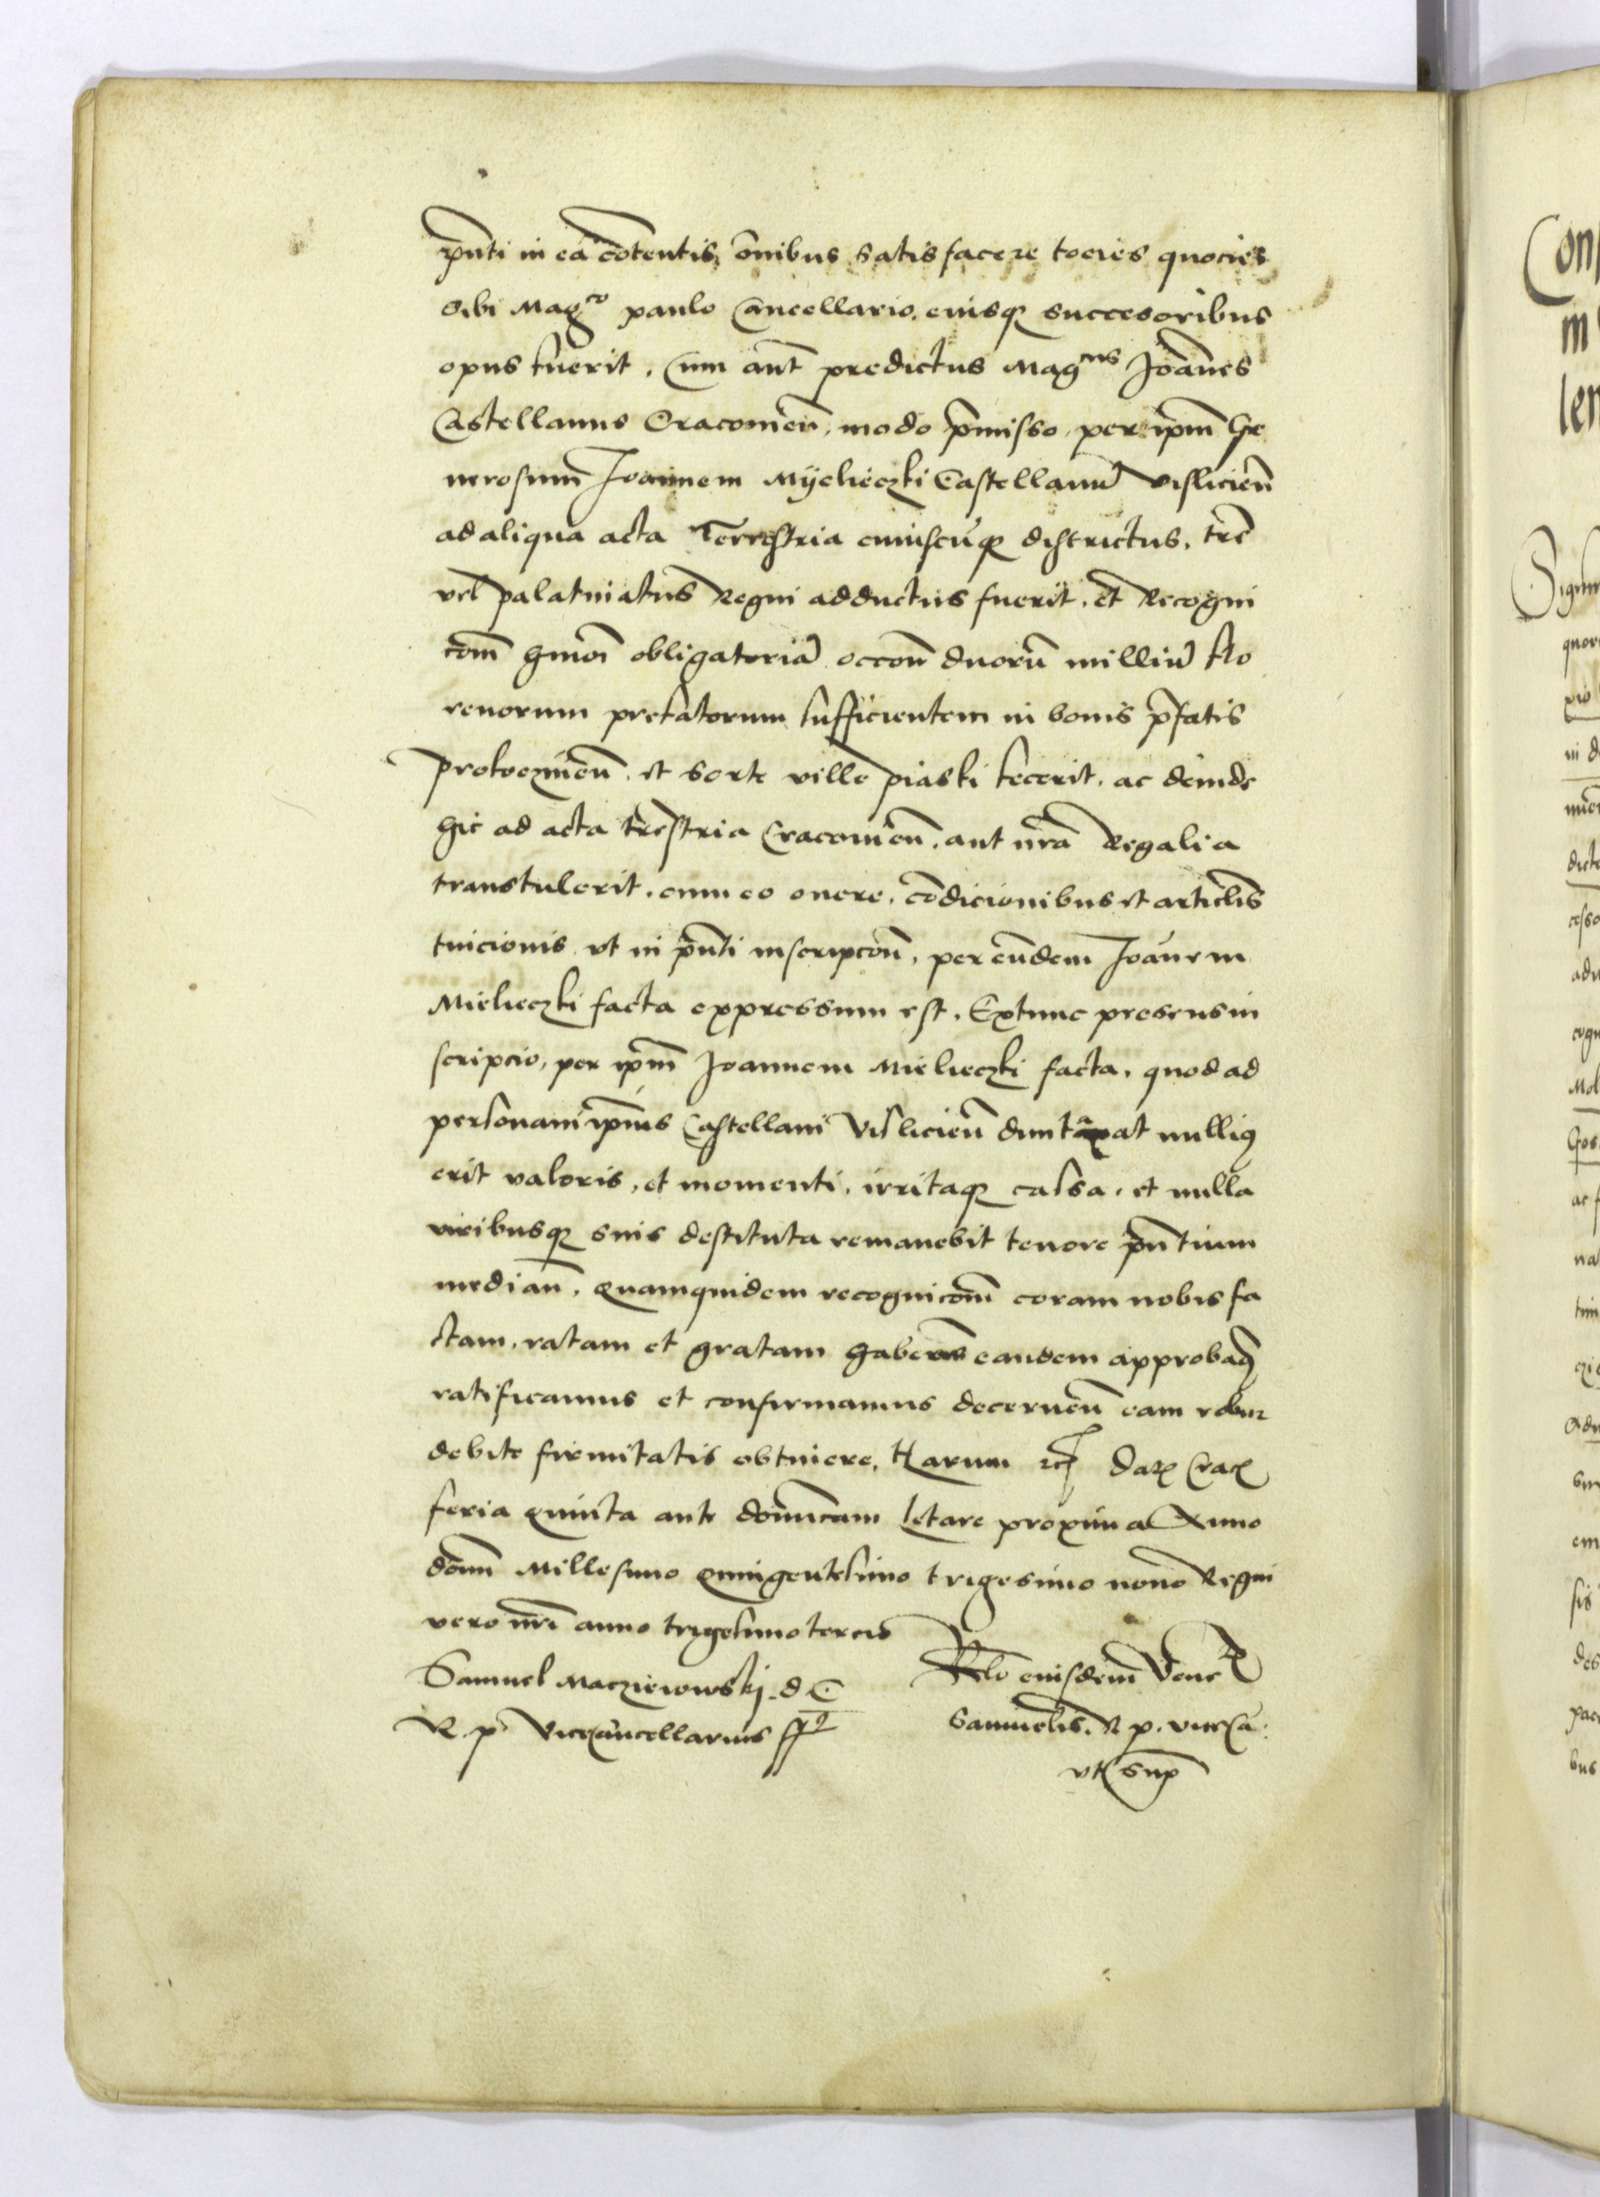 pnti in ea contentis, omnibus satisfacere tocies quocies
sibi Magco paulo Cancellario eiusq successoribus
opus fuerit. Cum aut predictus Magcus Joanes
Castellanus Cracouien, modo pmisso, per ipm Ge
nerosum Joannem Myelieczki Castellanu visliciens
ad aliqua acta Terrestria cuiuscuq districtus, tre
vel palatinatus Regni adductus fuerit. et Recogni
com hmoi obligatoria occon duoru milliu flo
renorum prefatorum sufficientem in bonis pfatis
et sorte ville piaski fecerit. ac deinde
hic ad acta trestria Cracouien. aut nra Regalia
transtulerit. cum eo onere, condicionibus et articlis
tuicionis vt in pnti inscripcon, per eundem Joanem
Mielieczki facta expressum est. Extunc presens in
scripcio, per ipm Joannem Mielieczki facta, quod ad
personam ipius Castellani Vislicien duntaxat nulliq
erit valoris, et momenti, irritaq cassa, et nulla
viribusq suis destituta remanebit tenore pntium
median. Quamquidem recognicom coram nobis fa
ctam, ratam et gratam habens eandem approbaq
ratificamus et confirmamus decernen eam robur
debite firmitatis obtinere, Harum rc Datz Crac
feria quinta ante domicam letare proxima Anno
domi Millesimo quingentesimo trigesimo nono Regni
vero nri anno trigesimo tercio
Samuel Macziewski d C
R. p Vicecancellarius sst
Rlo eiusdem Vene R
Samuelis. R p. viceca:
vt sup